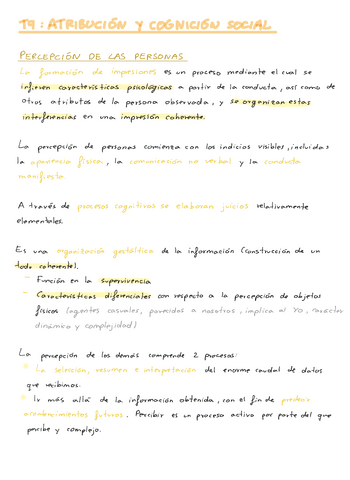 T9: ATRIBUCIÓN Y COGNICIÓN SOCIAL
PERCEPCIÓN DE LAS PERSONAS
La formación de impresiones es un proceso mediante el cual se
infieren características psicológicas a partir de la conducta, así como de
otros atributos de la persona observada, y se organizan estas
interferencias en una impresión coherente.
La percepción de personas comienza con los indicios visibles, incluidas
la apariencia física, la comunicación no verbal y la conducta
manifiesta.
A través de procesos cognitivos se elaboran juicios relativamente
elementales.
Es una organización gestáltica de la información (construcción de un
todo coherente).
- Función en la supervivencia
- Características diferenciales con respecto a la percepción de objetos
físicos (agentes causales, parecidos a nosotros, implica al Yo, carácter
dinámico y complejidad)
La percepción de los demás comprende 2 procesos:
* La selección, resumen e interpretación del enorme caudal de datos
que recibimos.
* Ir más allá de la información obtenida, con el fin de predecir
acontecimientos futuros. Percibir es un proceso activo por parte del que
percibe y complejo.